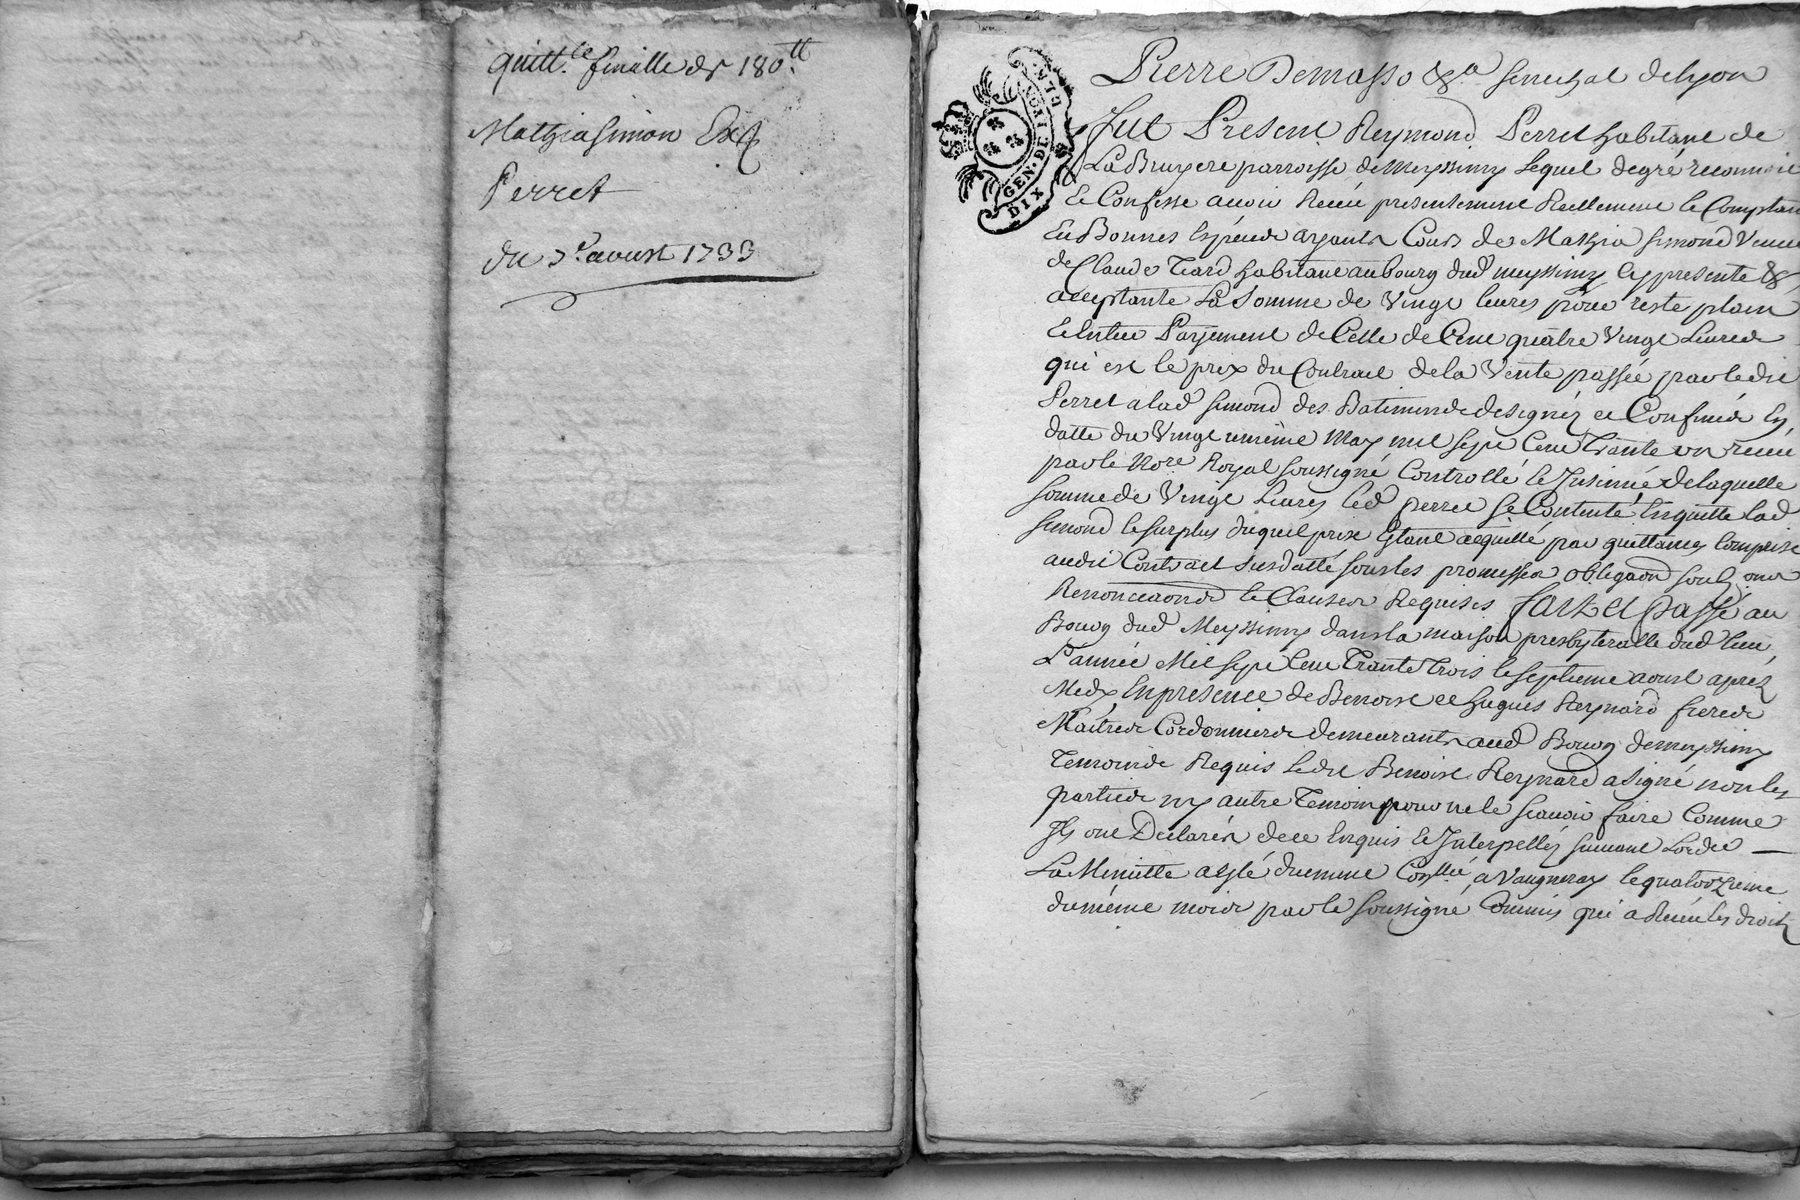 quitt.ce finalle de 180.tt
Mathia simon Ex
Perret
du 7e aoust 1733
GEN. DE LYON
DIX
Pierre Demasso &a senechal de lyon
Fut Present Reymond Perret habitant de
La Bruyere parroisse de Meyssimy lequel de gré reconnoit
Et Confesse avoir Receu presentement Reellement et Comptant
En Bonnes Especes ayants Cours de Mathia Simond veuve
de Claude habitante au bourg dud meyssimy icy presente &
acceptante La Somme de Vingt livres pour reste plain
Et Entier Payement de Celle de Cent quatre Vingt Livres
qui est le prix du Contract de la Vente passée par ledit
Perret a lad Simond des Batiments designéz et Confinés en
datte du Vingt unième May mil sept Cent Trante un receu
par le Nore Royal soussigné Controllé et Insinué de laquelle
somme de Vingt Livres led perret se Contente En quitte lad
Simond le surplus duquel prix Etant acquitté par quittances Comprise
audit Contract susdatté sous les promesses obligaon soub.ons
Renonciaons et Clauses Requises Fait et passé au
Bourg dud Meyssimy dans la maison presbyteralle dud lieu
L'année Mil sept Cent Trante Trois le septieme aoust apres
Midy En presence de Benoist et hugues Reynard freres
Maitres Cordonniers demeurants aud Bourg de meyssimy
Temoins Requis Ledit Benoist Reynard a signé non les
parties ny autre Temoin pour ne le sçavoir faire Comme
Ils ont Declarés de ce Enquis et Interpellés suivant Lordce
La Minutte a Esté duement Conllée a Vaugneray le quatorzieme
du même mois par le soussigné Commis qui a Receu les droits